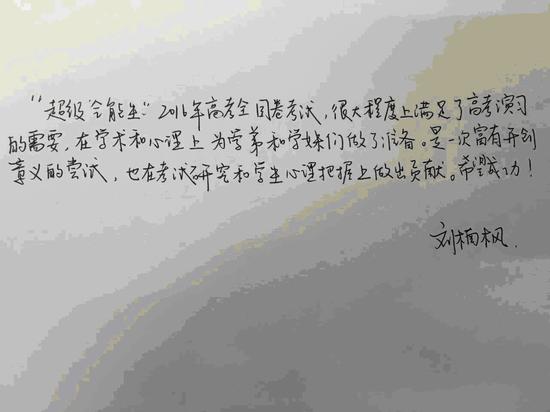 “超级全能生”2016年高考全国卷考试，很大程度上满足了高考演习
的需要，在学术和心理上为学弟和学妹们做了准备。是一次富有开创
意义的尝试，也在考试研究和学生心理把握上做出贡献。希望成功！
刘楠枫